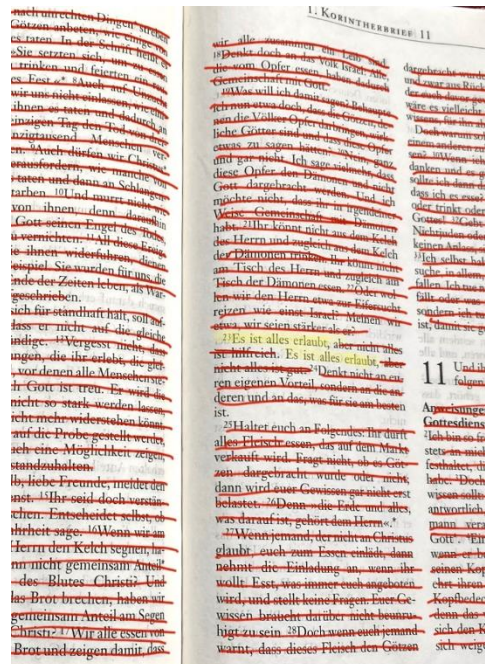 nach unrechten Dingen streben
Götzen anbeten, wie einige von
es taten. In der Schrift heißt es
»Sie setzten sich, um zu essen
trinken und feierten ein
es Fest.«* 8Auch auf Unzucht
wir uns nicht einlassen, wie einige
ihnen es taten und dadurch an
einzigen Tag den Tod von drei-
nzigtausend Menschen ver-
en. 9Auch dürfen wir Christus
erausfordern, wie manche von
taten und dann an Schlangen
tarben. 10Und murrt nicht, wie
von ihnen, denn daraufhin
Gott seinen Engel des Todes,
u vernichten. 11All diese Ereig-
e ihnen widerfuhren, dienen
eispiel. Sie wurden für uns, die
nde der Zeiten leben, als War-
geschrieben.
sich für standhaft hält, soll auf-
dass er nicht auf die gleiche
ndige. 13Vergesst nicht, dass
ngen, die ihr erlebt, die glei-
vor denen alle Menschen ste-
h Gott ist treu. Er wird die
nicht so stark werden lassen,
icht mehr widerstehen könnt.
auf die Probe gestellt werdet,
uch eine Möglichkeit zeigen,
standzuhalten.
lb, liebe Freunde, meidet den
nst. 15Ihr seid doch verstän-
chen. Entscheidet selbst, ob
hrheit sage. 16Wenn wir am
Herrn den Kelch segnen, ha-
nn nicht gemeinsam Anteil*
des Blutes Christi? Und
das Brot brechen, haben wir
gemeinsam Anteil am Segen
Christi? 17Wir alle essen von
Brot und zeigen damit, dass
1. KORINTHERBRIEF 11
wir alle zusammen ein Leib sind.
18Denkt doch an das Volk Israel: Alle,
die vom Opfer essen, haben dadurch
Gemeinschaft mit Gott.
19Was will ich damit sagen? Behaupte
ich nun etwa doch, dass die Götzen, de-
nen die Völker Opfer darbringen, wirk-
liche Götter sind und dass diese Opfer
etwas zu sagen hätten? 20Nein, ganz
und gar nicht. Ich sage vielmehr, dass
diese Opfer den Dämonen und nicht
Gott dargebracht werden. Und ich
möchte nicht, dass ihr in irgendeiner
Weise Gemeinschaft mit Dämonen
habt. 21Ihr könnt nicht aus dem Kelch
des Herrn und zugleich aus dem Kelch
der Dämonen trinken. Ihr könnt nicht
am Tisch des Herrn und zugleich am
Tisch der Dämonen essen. 22Oder wol-
len wir den Herrn etwa zur Eifersucht
reizen wie einst Israel? Meinen wir
etwa, wir seien stärker als er?
23Es ist alles erlaubt, aber nicht alles
ist hilfreich. Es ist alles erlaubt, aber
nicht alles ist gut. 24Denkt nicht an eu-
ren eigenen Vorteil, sondern an die an-
deren und an das, was für sie am besten
ist.
25Haltet euch an Folgendes: Ihr dürft
alles Fleisch essen, das auf dem Markt
verkauft wird. Fragt nicht, ob es Göt-
zen dargebracht wurde oder nicht,
dann wird euer Gewissen gar nicht erst
belastet. 26Denn »die Erde und alles,
was darauf ist, gehört dem Herrn«.*
27Wenn jemand, der nicht an Christus
glaubt, euch zum Essen einlädt, dann
nehmt die Einladung an, wenn ihr
wollt. Esst, was immer euch angeboten
wird, und stellt keine Fragen. Euer Ge-
wissen braucht darüber nicht beunru-
higt zu sein. 28Doch wenn euch jemand
warnt, dass dieses Fleisch den Götzen
dargebracht wurde
und zwar aus Rück
wäre es vielleicht
Doch warum
einem anderen
sen? 30Wenn ich
danken und es
sollte ich dann
dass ich es esse?
oder trinkt oder
Gottes! 32Gebt
Nichtjuden oder
keinen Anlass
33Ich selbst hal
suche in allem
fallen. Ich tue
fällt oder was
sondern ich
ist, damit sie
11 Und ih
folgen
Anweisungen
Gottesdiens
2Ich bin so fr
stets an mich
festhaltet, di
habe. 3Doch
wissen sollt
antwortlich
mann vera
Gott*. 4Ein
wenn er b
seinen Kop
ehrt ihren
Kopfbedec
denn das
sich den K
sich weigt